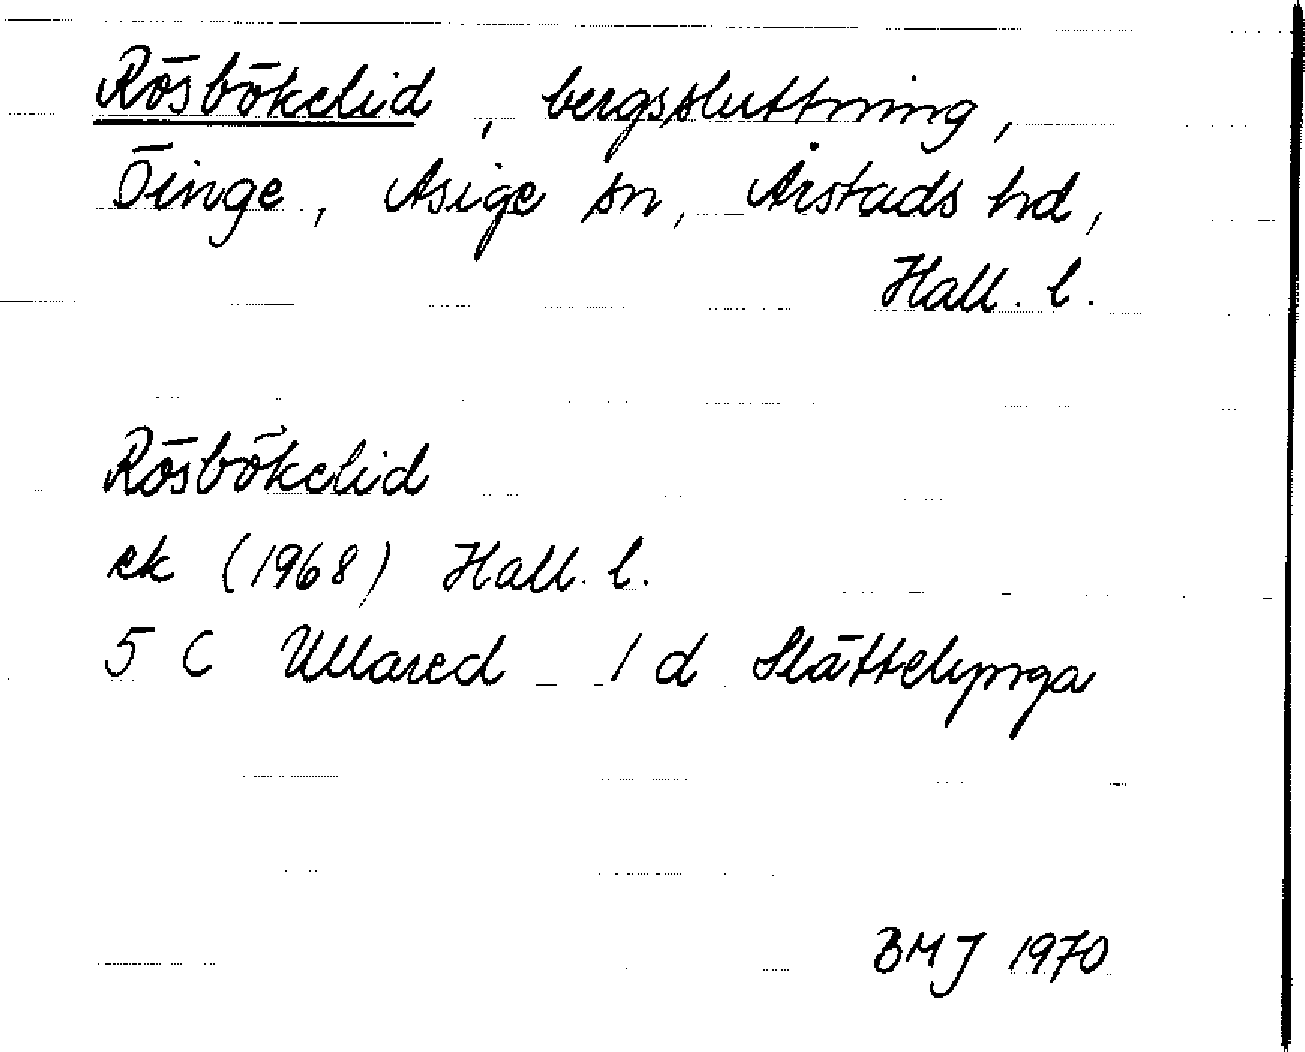 Rösbökelid, bergssluttning,
Öinge, Asige sn, Årstads hd,
Hall. l.
Rösbökelid
ek (1968) Hall. l.
5 C Ullared 1 d Slättelynga
BMJ 1970